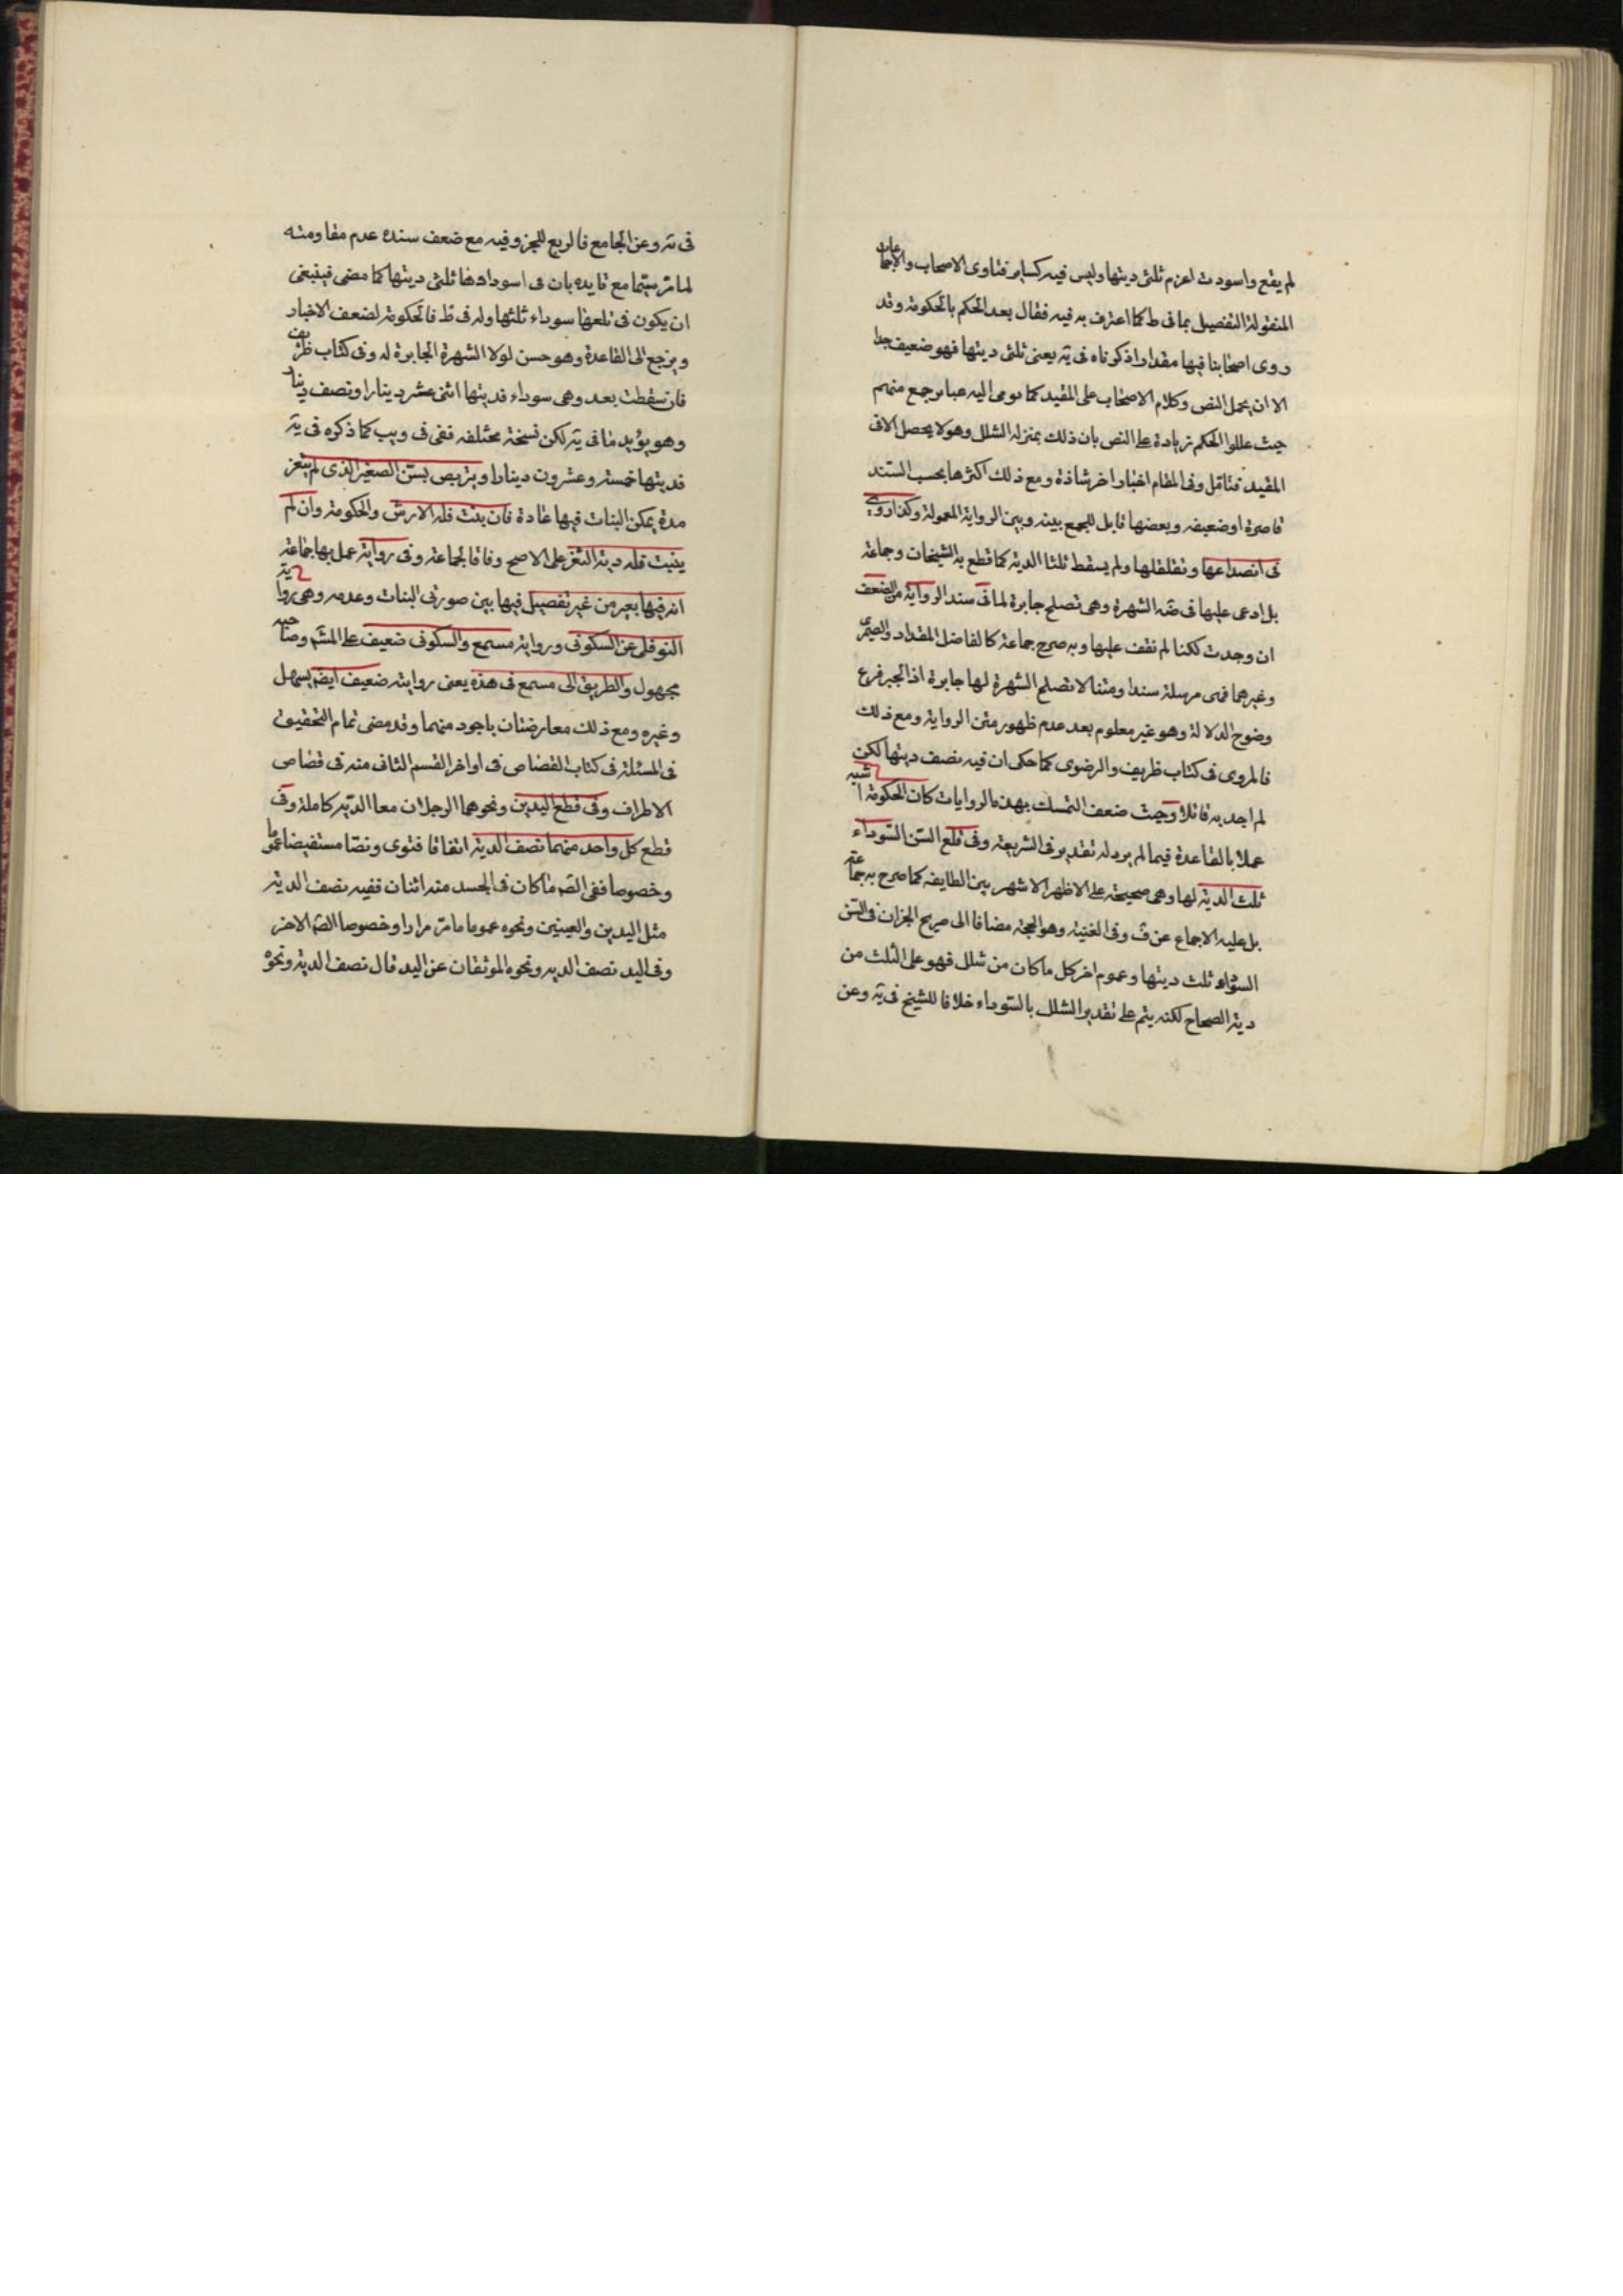 لم يقع واسودت اغرم ثلثى ديتها وليس فيه كساير فتاوى الاصحاب والاجماعات
المنقولة التفصيل بما فى ط كما اعترف به فيه فقال بعد الحكم بالحكومة وقد
روى اصحابنا فيها مقدارا ذكرناه فى ية يعنى ثلثى ديتها فهو ضعيف جدا
الا ان يحمل النص وكلام الاصحاب على المقيد كما يومى اليه عباير جمع منهم
حيث عللوا الحكم زيادة على النص بان ذلك بمنزلة الشلل وهو لا يحصل الا فى
المقيد فتامل وفى المقام اخبار اخر شاذة ومع ذلك اكثرها بحسب السند
قاصرة او ضعيفه وبعضها قابل للجمع بينه وبين الرواية المعمولة وكذا روى
فى انصداعها وتقلقلها ولم يسقط ثلثا الدية كما قطع به الشيخان وجماعة
بل ادعى عليها فى ضه الشهرة وهى تصلح جابرة لما فى سند الرواية من الضعف
ان وجدت لكنا لم نقف عليها وبه صرح جماعة كالفاضل المقداد والصيمرى
وغيرهما فهى مرسلة سندا ومتنا لا تصلح الشهرة لها جابرة اذ الجبر فرع
وضوح الدلالة وهو غير معلوم بعد عدم ظهور متن الرواية ومع ذلك
فالمروى فى كتاب ظريف والرضوى كما حكى ان فيه نصف ديتها لكن
لم اجد به قائلا وحيث ضعف التمسك بهذه الروايات كان الحكومة اشبه
عملا بالقاعدة فيما لم يرد له تقدير فى الشريعة وفى قلع السن السوداء
ثلث الدية لها وهى صحيحة على الاظهر الاشهر بين الطايفه كما صرح به جماعة
بل عليه الاجماع عن ف وفى الغنية وهو الحجة مضافا الى صريح الخبر ان فى السن
السوداء ثلث ديتها وعموم اخر كل ما كان من شلل فهو على الثلث من
دية الصحاح لكنه يتم على تقدير الشلل بالسوداء خلافا للشيخ فى ية وعن
فى ية وعن الجامع فالربع للخبر وفيه مع ضعف سنده عدم مقاومته
لما مر سيما مع تايده بان فى اسودادها ثلثى ديتها كما مضى فينبغى
ان يكون فى قلعها سوداء ثلثها وله فى ط فالحكومة لضعف الاخبار
ويرجع الى القاعدة وهو حسن لولا الشهرة الجابرة له وفى كتاب ظريف
فان سقطت بعد وهى سوداء فديتها اثنى عشر دينارا ونصف دينار
وهو يؤيد ما فى ية لكن نسخة مختلفه ففى فى ويب كما ذكره فى ية
فديتها خمسة وعشرون دينارا ويتربص بسن الصغير الذى لم يثغر
مدة يمكن النبات فيها عادة فان نبت فله الارش والحكومة وان لم
ينبت فله دية الثغر على الاصح وفاقا لجماعة وفى رواية عمل بها جماعة
ان فيها بعير من غير تفصيل فيها بين صورتى النبات وعدمه وهى رواية
النوفلى عن السكونى ورواية مسمع والسكونى ضعيف على المشهم وصاحبه
مجهول والطريق الى مسمع فى هذه يعنى روايته ضعيف ايضم بسهل
وغيره ومع ذلك معارضتان باجود منهما وقد مضى تمام التحقيق
فى المسئلة فى كتاب القصاص فى اواخر القسم الثانى منه فى قصاص
الاطراف وفى قطع اليدين ونحوهما الرجلان معا الدية كاملة وفى
قطع كل واحد منهما نصف الدية اتفاقا فتوى ونصا مستفيضا عموما
وخصوصا ففى الصم ما كان فى الجسد منه اثنان ففيه نصف الدية
مثل اليدين والعينين ونحوه عموما ما مر مرارا وخصوصا الصم الاخر
وفى اليد نصف الديه ونحوه الموثقان عن اليد قال نصف الدية ونحوه